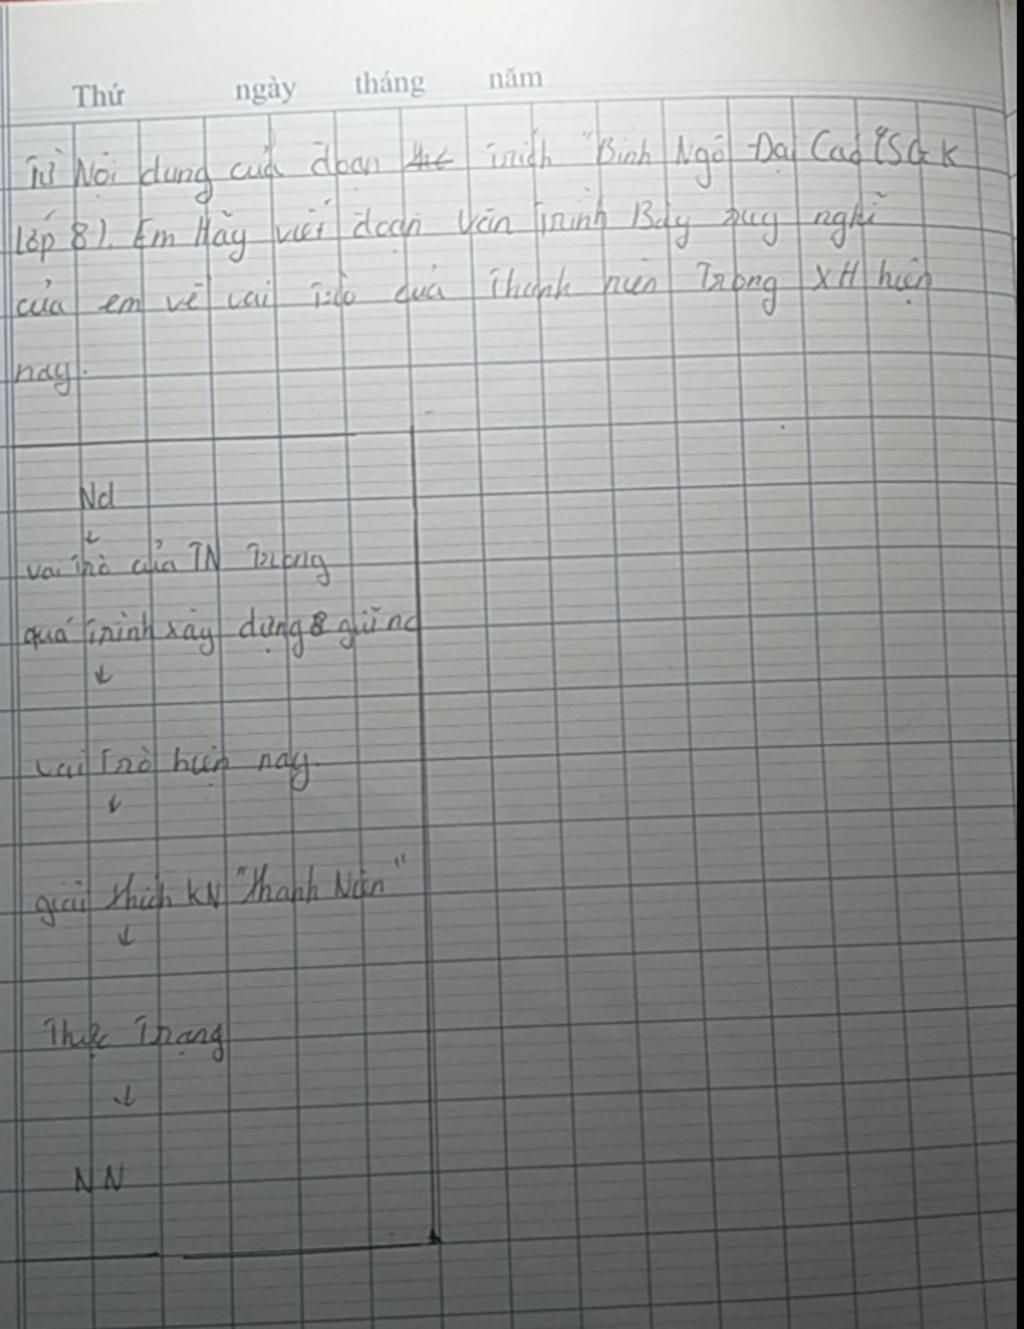 Thứ ngày tháng năm
Từ Nội dung của đoạn trích "Bình Ngô Đại Cáo" (SGK
lớp 8). Em Hãy viết đoạn văn Trình Bày suy nghĩ
của em về vai trò của thanh niên Trong XH hiện
nay.
Nd
↓
vai trò của TN Trong
quá trình xây dựng & giữ nc
↓
vai Trò hiện nay.
↓
giải thích KN "Thanh Niên"
↓
Thực Trạng
↓
NN